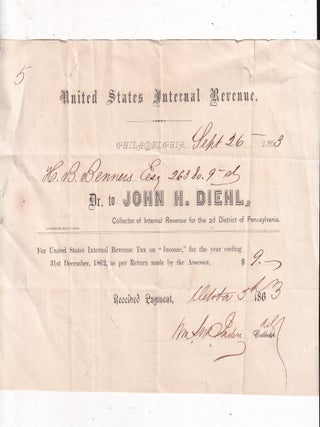 5
United States Internal Revenue.
PHILADELPHIA, Sept 26 1863
H. B. Benners Esq 263 So. 9th St
Dr. to JOHN H. DIEHL,
Collector of Internal Revenue for the 2d District of Pennsylvania.
For United States Internal Revenue Tax on "Income," for the year ending
31st December, 1862, as per Return made by the Assessor, $ 9.–
Received Payment, October 5th 1863
Wm.
Collector.